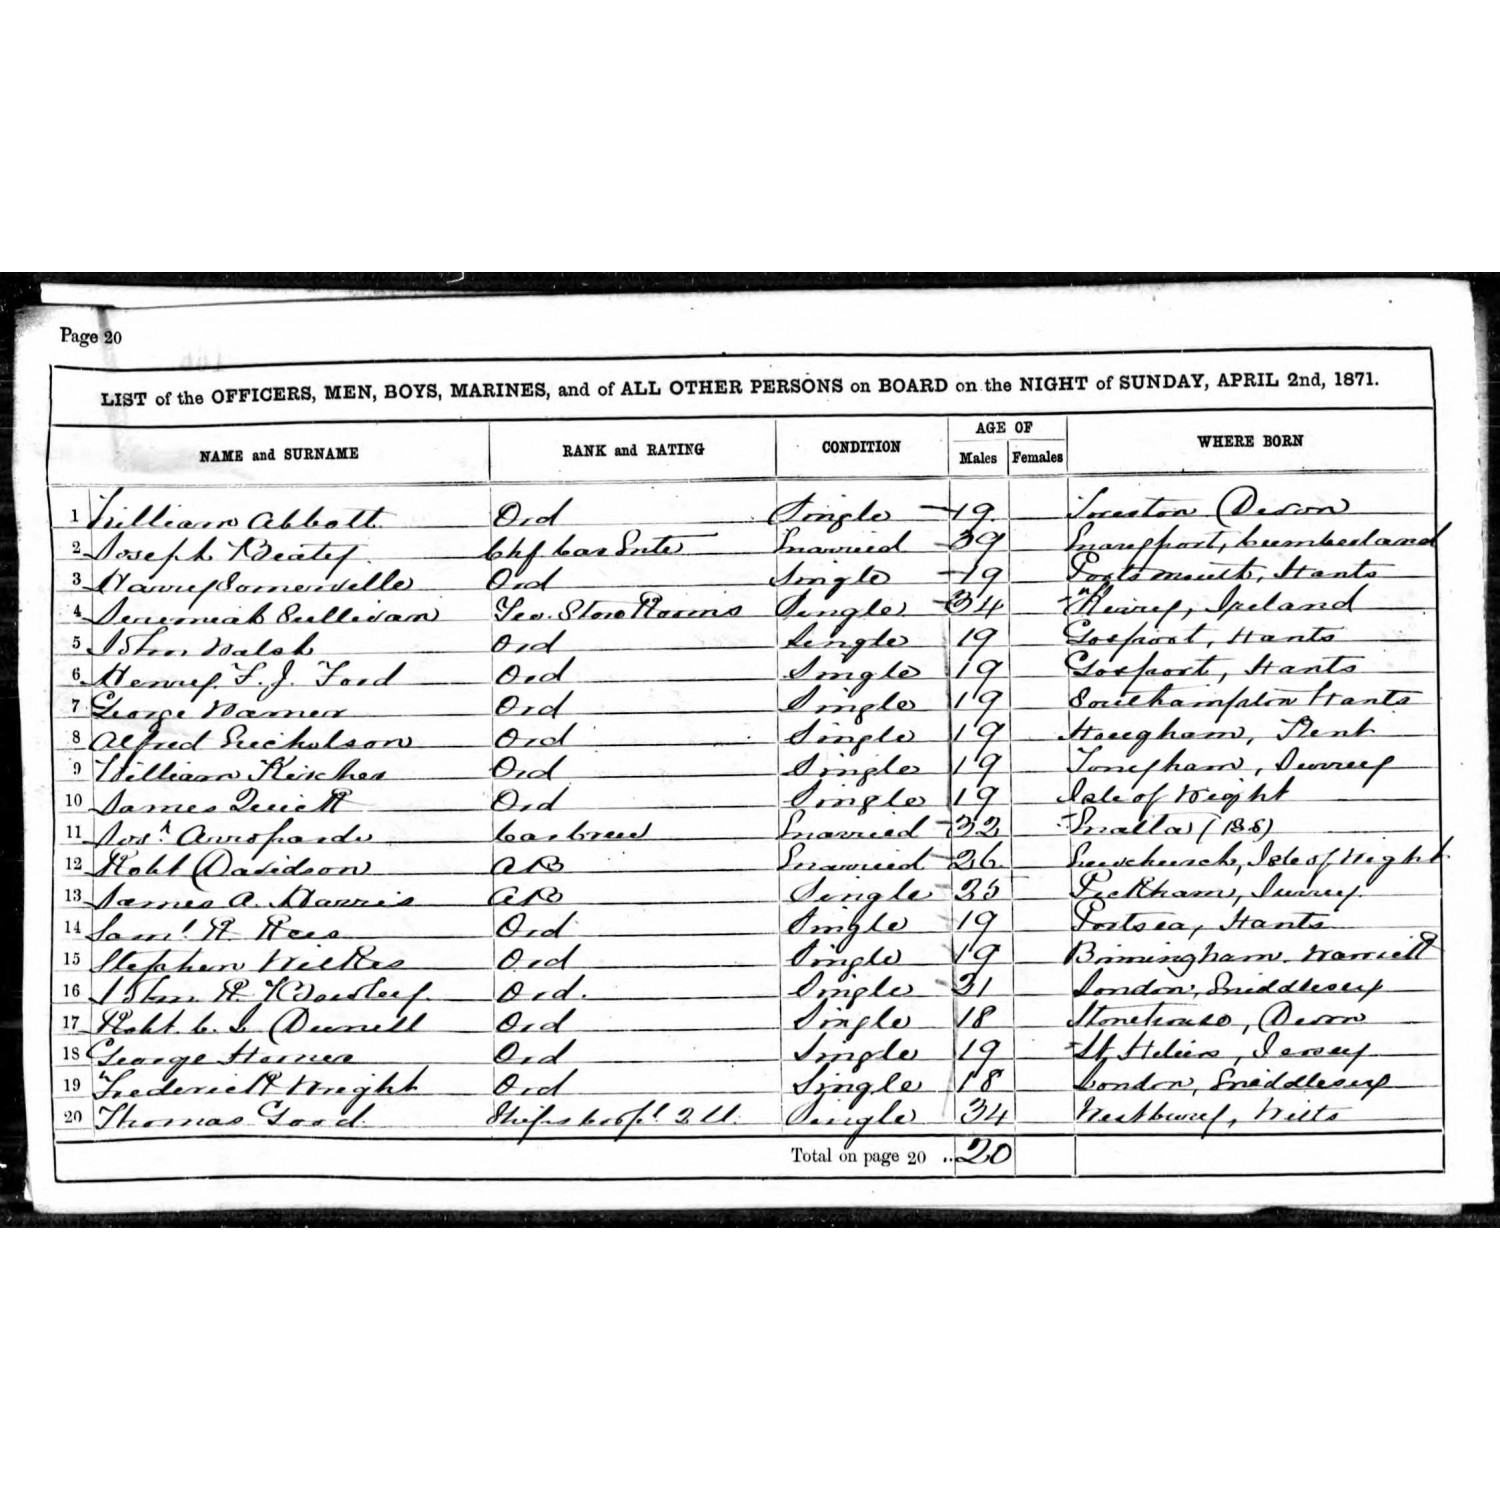 Page 20
LIST of the OFFICERS, MEN, BOYS, MARINES, and of ALL OTHER PERSONS on BOARD on the NIGHT of SUNDAY, APRIL 2nd, 1871.
NAME and SURNAME RANK and RATING CONDITION AGE OF WHERE BORN
Males Females
1 William Abbott Ord Single 19 Devon
2 Joseph Beaty Married 39 Maryport, Cumberland
3 Harry Somerville Ord Single 19 Portsmouth, Hants
4 Jeremiah Sullivan Store Rooms Single 34 Ireland
5 John Walsh Ord Single 19 Gosport, Hants
6 Henry F. J. Ford Ord Single 19 Gosport, Hants
7 George Warner Ord Single 19 Southampton Hants
8 Alfred Nicholson Ord Single 19 Hougham, Kent
9 William Kircher Ord Single 19 Tongham, Surrey
10 James Quick Ord Single 19 Isle of Wight
11 Josh Car Crew Married 32 Malta (BS)
12 Robt Davidson AB Married 26 Newchurch, Isle of Wight
13 James A. Harris AB Single 25 Peckham, Surrey
14 Saml H. Rees Ord Single 19 Portsea, Hants
15 Stephen Wilkes Ord Single 19 Birmingham Warwick
16 John R Bowsley Ord. Single 21 London, Middlesex
17 Robt. C. Ord Single 18 Stonehouse, Devon
18 George Horner Ord Single 19 St Heliers, Jersey
19 Frederick Wright Ord Single 18 London, Middlesex
20 Thomas Good Ships Corpl 2 Cl. Single 34 Westbury, Wilts
Total on page 20 .. 20